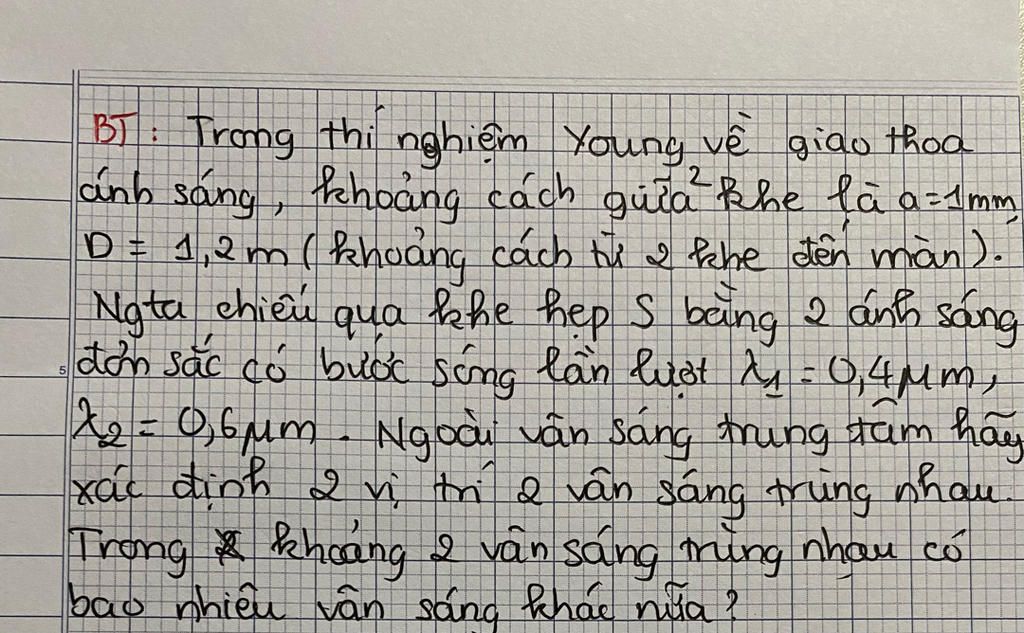 BT: Trong thí nghiệm Young về giao thoa
ánh sáng, khoảng cách giữa 2 khe là a = 1mm,
D = 1,2m (khoảng cách từ 2 khe đến màn).
Ngta chiếu qua khe hẹp S bằng 2 ánh sáng
5 đơn sắc có bước sóng lần lượt λ1 = 0,4μm,
λ2 = 0,6μm. Ngoài vân sáng trung tâm hãy
xác định 2 vị trí 2 vân sáng trùng nhau.
Trong khoảng 2 vân sáng trùng nhau có
bao nhiêu vân sáng khác nữa?